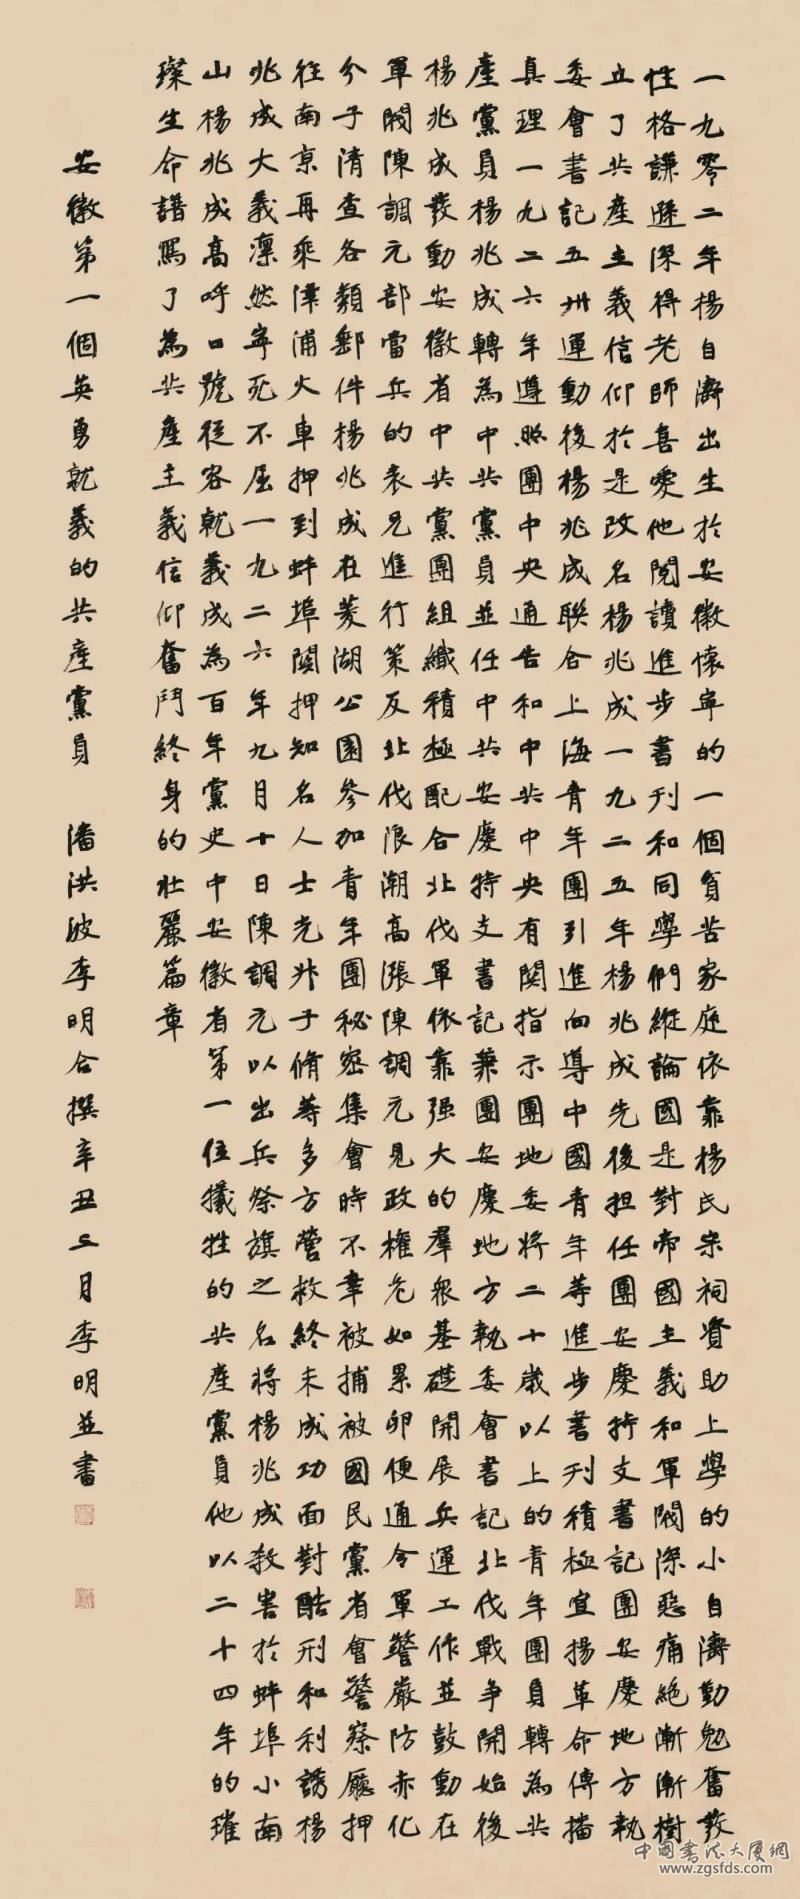 一九零二年楊自濟出生於安徽懷寧的一個貧苦家庭依靠楊氏宗祠資助上學的小自濟勤勉奮發
性格謙遜深得老師喜愛他閱讀進步書刊和同學們縱論國是對帝國主義和軍閥深惡痛絕漸漸樹
立了共產主義信仰於是改名楊兆成一九二五年楊兆成先後担任團安慶特支書記團安慶地方執
委會書記五卅運動後楊兆成聯合上海青年團引進向導中國青年等進步書刊積極宣揚革命傳播
真理一九二六年遵照團中央通告和中共中央有関指示團地委将二十歲以上的青年團員轉為共
產黨員楊兆成轉為中共黨員並任中共安慶特支書記兼團安慶地方執委會書記北伐戰争開始後
楊兆成發動安徽省中共黨團組織積極配合北伐軍依靠强大的羣衆基礎開展兵運工作並鼓動在
軍閥陳調元部當兵的表兄進行策反北伐浪潮高漲陳調元見政權危如累卵便通令軍警嚴防赤化
分子清查各類郵件楊兆成在菱湖公園参加青年團秘密集會時不幸被捕被國民黨省會警察廳押
往南京再乘津浦火車押到蚌埠関押知名人士光升于脩等多方營救終未成功面對酷刑和利誘楊
兆成大義凛然寧死不屈一九二六年九月十日陳調元以出兵祭旗之名将楊兆成殺害於蚌埠小南
山楊兆成高呼口號從容就義成為百年黨史中安徽省第一位犧牲的共產黨員他以二十四年的璀
璨生命譜寫了為共產主義信仰奮鬥終身的壯麗篇章
安徽第一個英勇就義的共產黨員 潘洪波李明合撰辛丑三月李明並書
中國書法大厦網
www.zgsfds.com